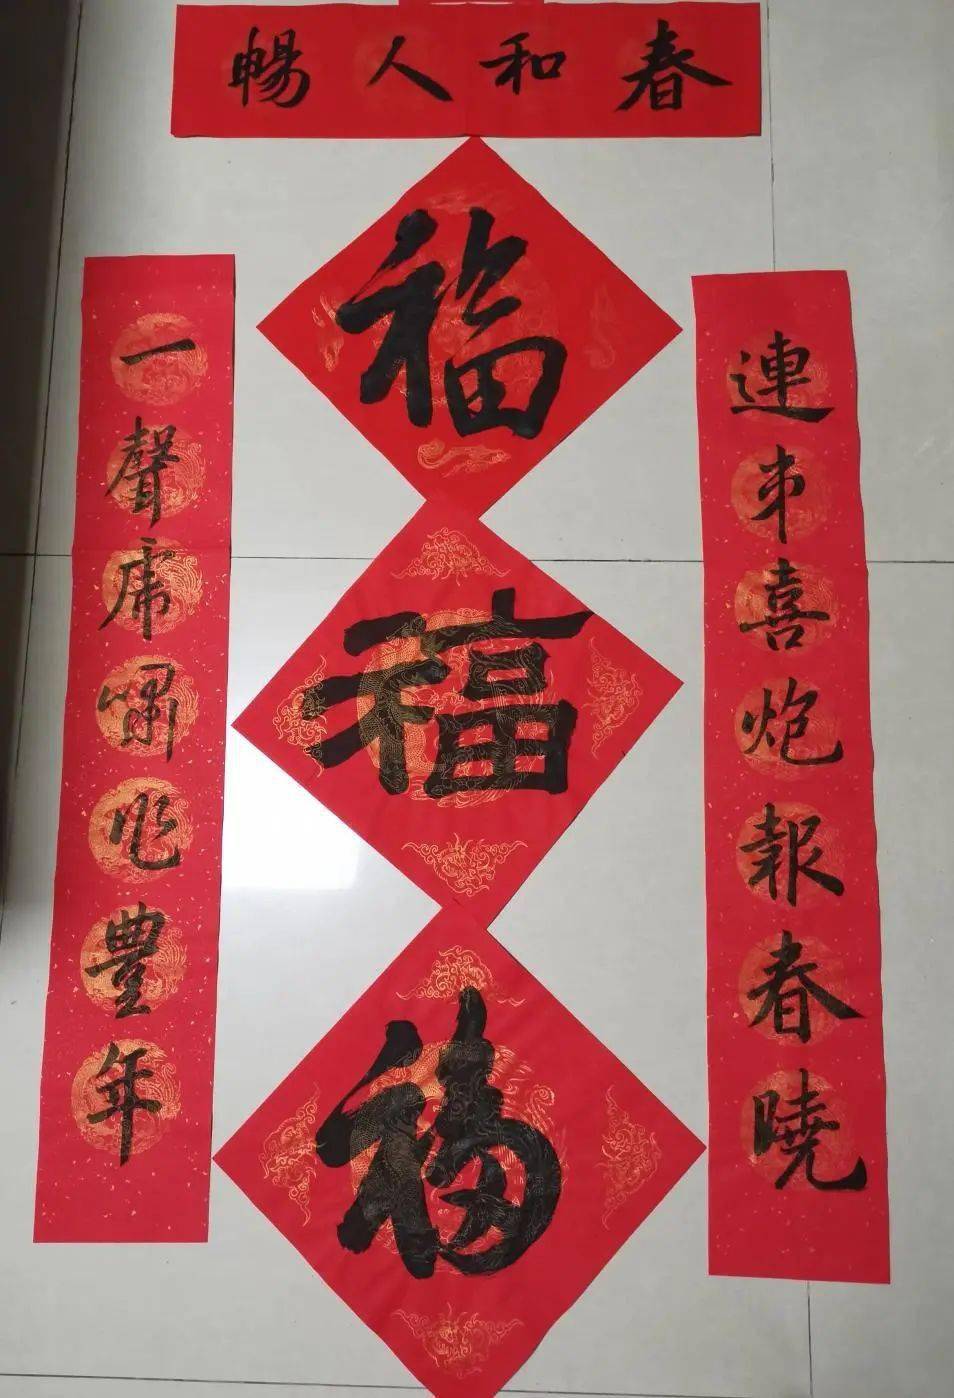 春和人暢
連串喜炮報春曉
一聲虎嘯兆豐年
福
福
福